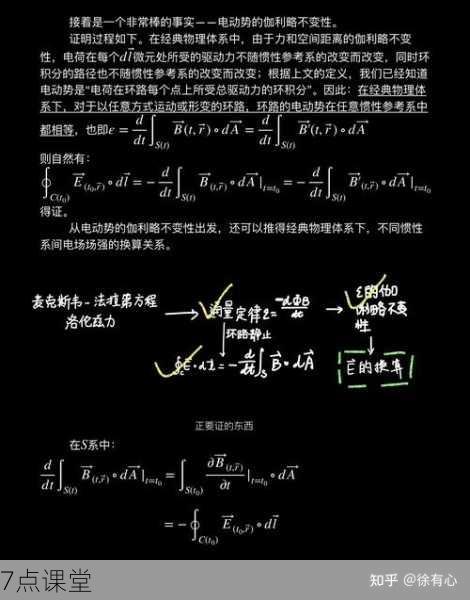 接着是一个非常棒的事实——电动势的伽利略不变性。
证明过程如下。在经典物理体系中，由于力和空间距离的伽利略不变
性，电荷在每个$d\vec{l}$微元处所受的驱动力不随惯性参考系的改变而改变，同时环
积分的路径也不随惯性参考系的改变而改变；根据上文的定义，我们已经知道
电动势是“电荷在环路每个点上所受总驱动力的环积分”。因此：在经典物理体
系下，对于以任意方式运动或形变的环路，环路的电动势在任意惯性参考系中
都相等，也即$\varepsilon = \frac{d}{dt}\int_{S(t)} \vec{B}(t,\vec{r}) \circ d\vec{A} = \frac{d}{dt}\int_{S(t)} \vec{B'}(t,\vec{r}) \circ d\vec{A}$
则自然有：
$\oint_{C(t_0)} \vec{E}_{(t_0,\vec{r})} \circ d\vec{l} = -\frac{d}{dt}\int_{S(t)} \vec{B}_{(t,\vec{r})} \circ d\vec{A}|_{t=t_0} = -\frac{d}{dt}\int_{S(t)} \vec{B'}_{(t,\vec{r})} \circ d\vec{A}|_{t=t_0}$
得证。
从电动势的伽利略不变性出发，还可以推得经典物理体系下，不同惯性
系间电场场强的换算关系。
麦克斯韦-法拉第方程
洛伦兹力
→ 通量定律 $\varepsilon = \frac{-d\Phi_B}{dt}$ →
ε的伽
利略不变
性
↓环路静止
$\oint_C \vec{E} \cdot d\vec{l} = -\frac{d}{dt}\int_S \vec{B} \cdot d\vec{A}$
$\vec{E}$的换算
正要证的东西
在S系中：
$\frac{d}{dt}\int_{S(t)} \vec{B}_{(t,\vec{r})} \circ d\vec{A}|_{t=t_0} = \int_{S(t_0)} \frac{\partial \vec{B}_{(t,\vec{r})}}{\partial t}|_{t=t_0} \circ d\vec{A}$
$= -\oint_{C(t_0)} \vec{E}_{(t_0,\vec{r})} \circ d\vec{l}$
7点课堂
知乎 @徐有心